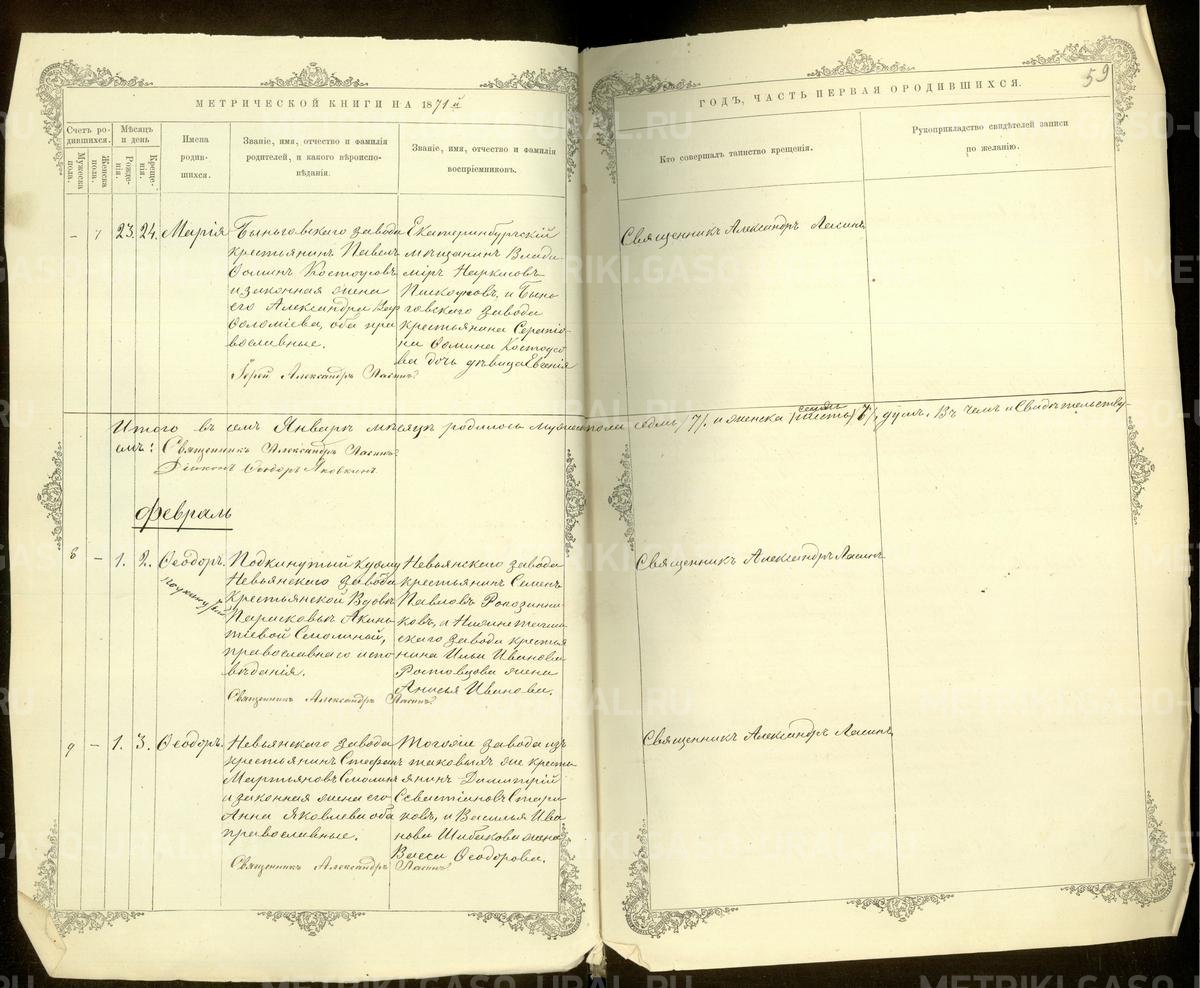 59
МЕТРИЧЕСКОЙ КНИГИ НА 1871й
ГОДЪ, ЧАСТЬ ПЕРВАЯ ОРОДИВШИХСЯ.
Счетъ родившихся.
Мужеска пола.
Женска пола.
Мѣсяцъ и день
Рожденія.
Крещенія.
Имена родившихся.
Званіе, имя, отчество и фамилія родителей, и какого вѣроисповѣданія.
Званіе, имя, отчество и фамилія воспріемниковъ.
Кто совершалъ таинство крещенія.
Рукоприкладство свидѣтелей записи по желанію.
– 7 23. 24. Марія
Быньговскаго завода
крестьянинъ Павелъ
Ѳоминъ Костоусовъ
и законная жена
его Александра Вар
ѳоломіева, оба пра
вославные.
Іерей Александръ
Екатеринбургскій
мѣщанинъ Влади
міръ
и Бынь
говскаго завода
крестьянина Серапіо
на Ѳомина Костоусо
ва дочь дѣвица Евгенія
Священникъ Александръ
Итого въ семъ Январѣ мѣсяцѣ родилось мужеска пола седмь /7/. и женска /шесть/ седмь 7/, душъ. Въ чемъ и Свидѣтельству-
емъ: Священникъ Александръ
Діаконъ Ѳеодоръ Яковкинъ
Февраль
8 – 1. 2. Ѳеодоръ.
Подкинутый къ дому
Невьянскаго завода
Крестьянской Вдовы
Парасковьи Акинѳ
тіевой Смолиной,
православнаго испо
вѣданія.
Священникъ Александръ
Невьянскаго завода
крестьянинъ Семенъ
Павловъ
скаго завода крестья
нина Ильи Иванова
Ростовцова жена
Анисья Иванова.
Священникъ Александръ
9 – 1. 3. Ѳеодоръ.
Невьянскаго завода
крестьянинъ Стефанъ
Мартьяновъ Смолинъ
и законная жена его
Анна Яковлева оба
православные.
Священникъ Александръ
Тогоже завода изъ
таковыхъ же кресть
янинъ Димитрій
Севастіановъ Стари
ковъ, и Василья Ива
нова Шибакова жена
Васса Ѳеодорова.
Священникъ Александръ
METRIKI.GASO-URAL.RU